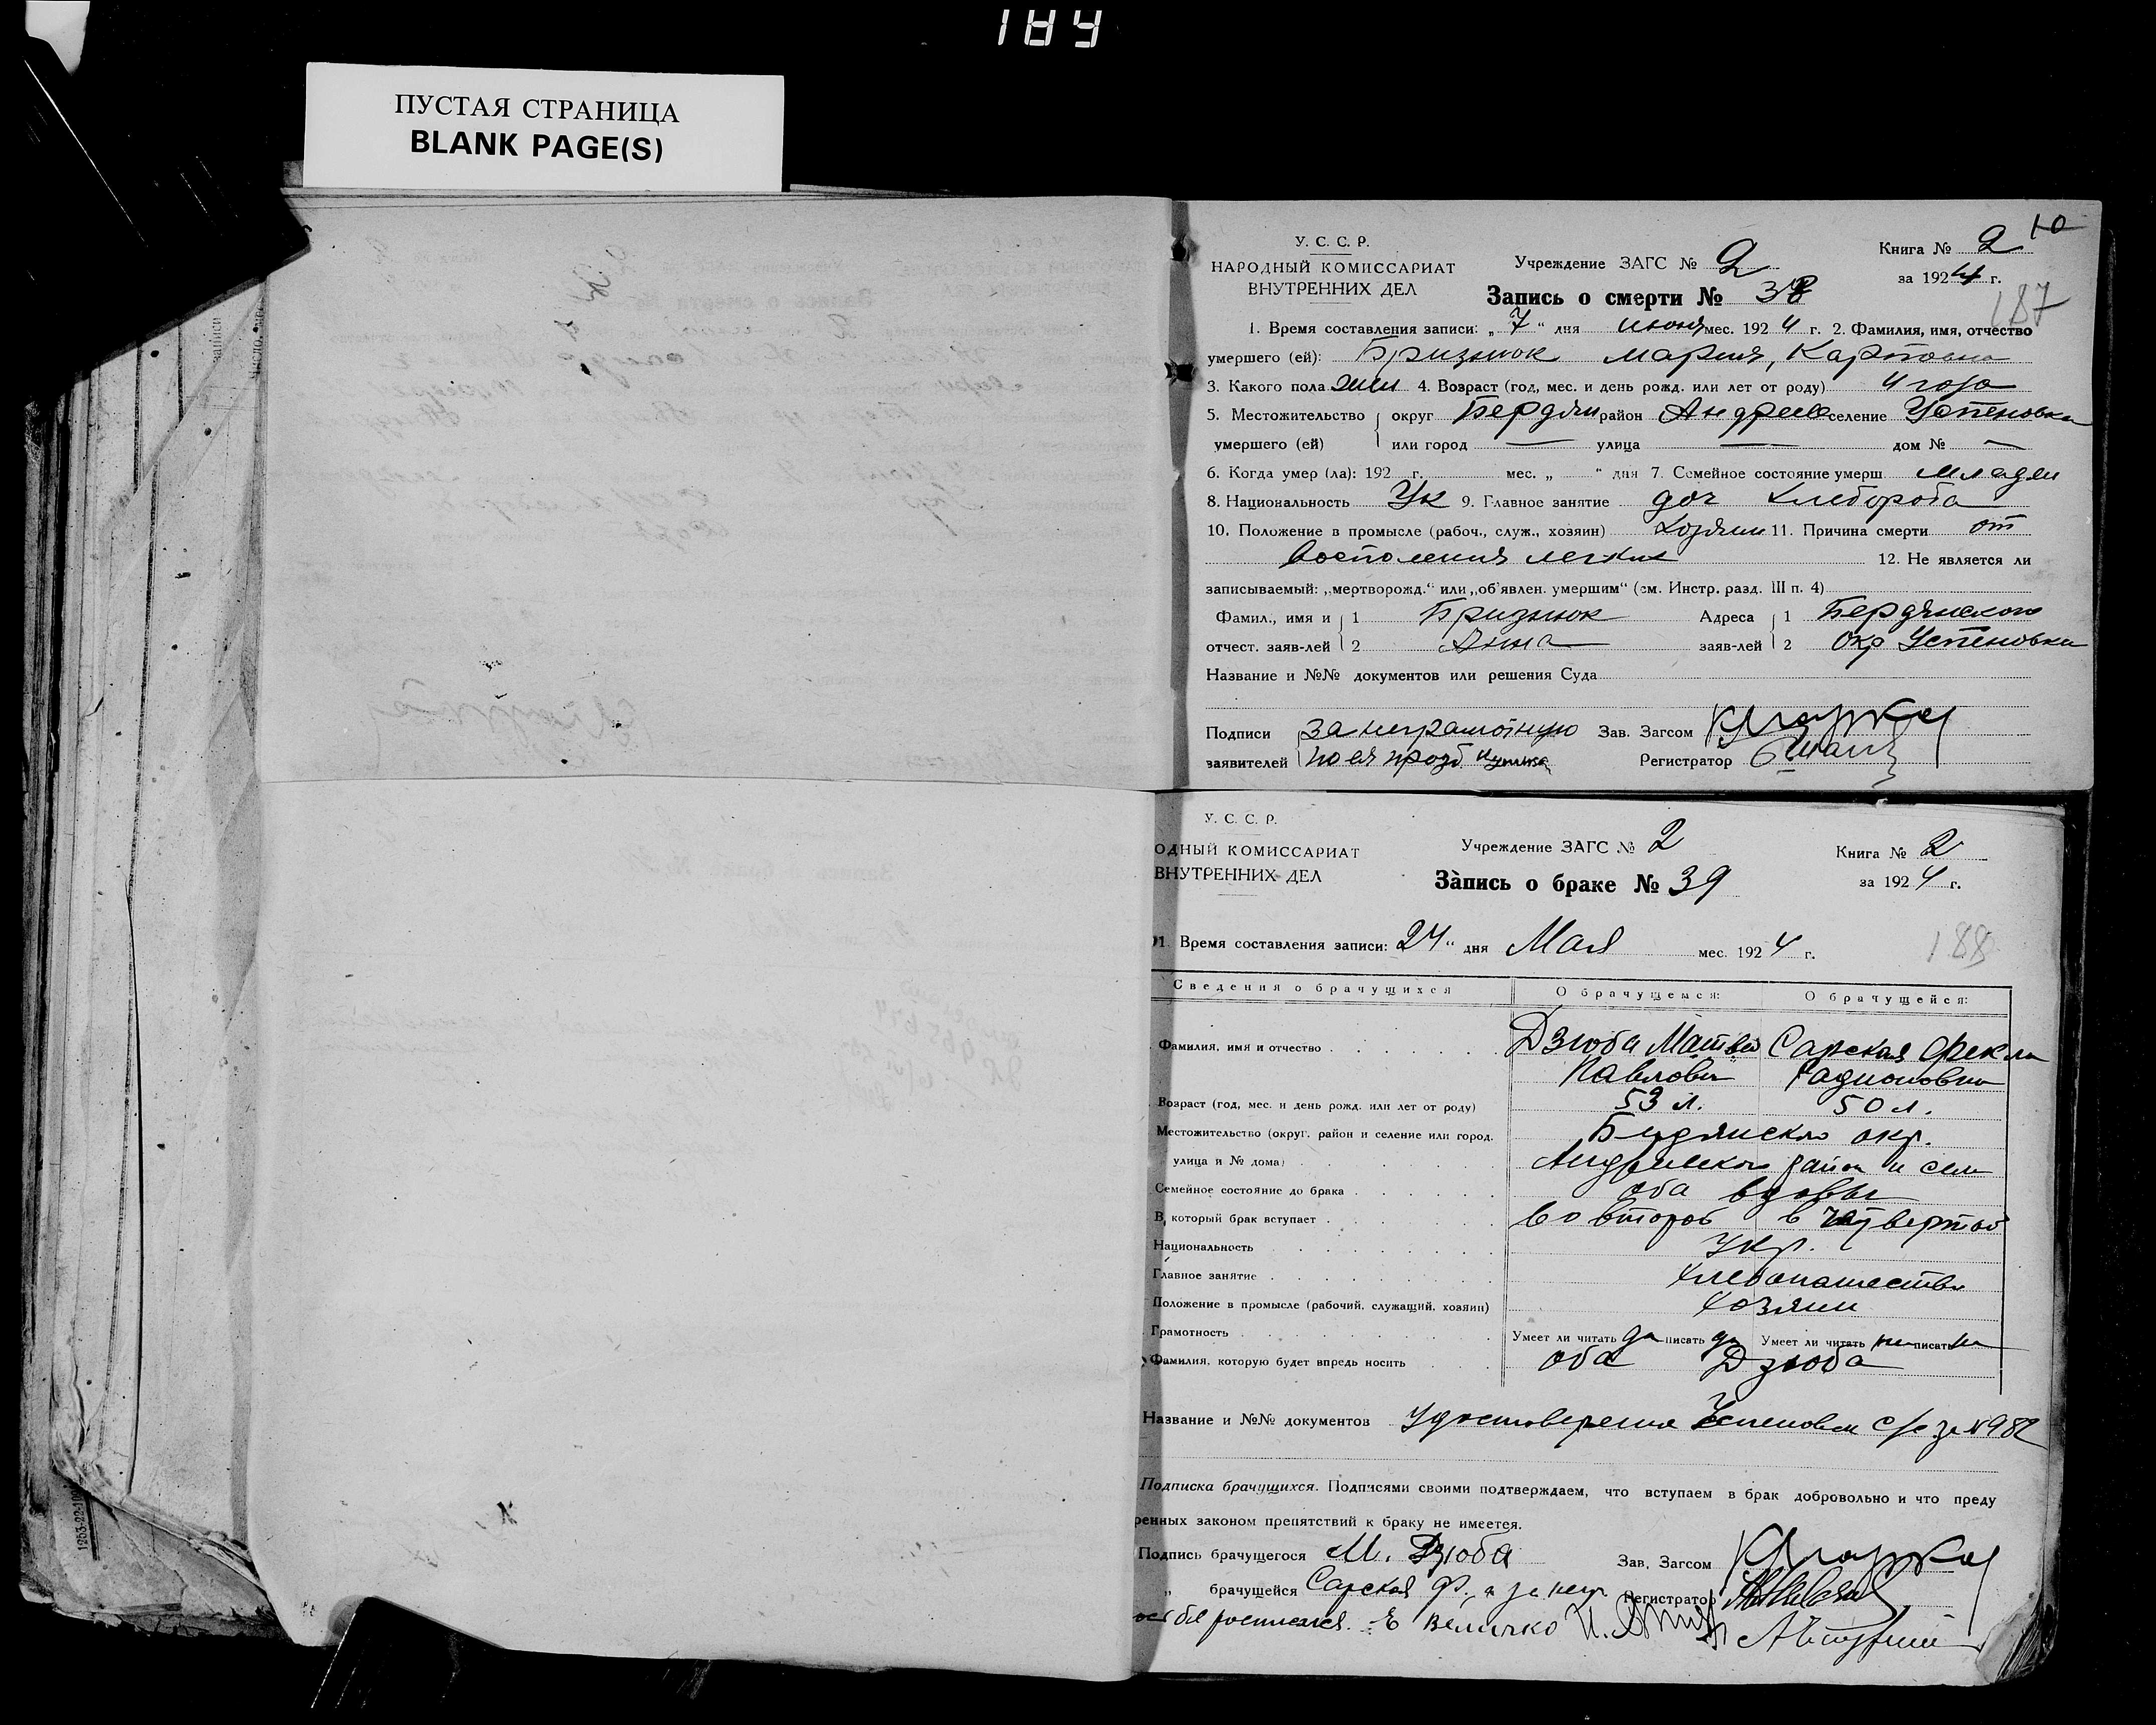 189
ПУСТАЯ СТРАНИЦА
BLANK PAGE(S)
10
У. С. С. Р.
НАРОДНЫЙ КОМИССАРИАТ
ВНУТРЕННИХ ДЕЛ
Учреждение ЗАГС № 2
Книга № 2
за 1924 г.
Запись о смерти № 38
187
1. Время составления записи: „7“ дня июня мес. 1924 г. 2. Фамилия, имя, отчество
умершего (ей): Бризнюк Мария, Карповна
3. Какого пола жен 4. Возраст (год, мес. и день рожд. или лет от роду) 4 года
5. Местожительство округ Бердян район Андреев селение Успеновка
умершего (ей) или город — улица — дом № —
6. Когда умер (ла): 192 г. мес. „ “ дня 7. Семейное состояние умерш. младен
8. Национальность Ук 9. Главное занятие доч хлебороба
10. Положение в промысле (рабоч., служ., хозяин) Хозяин 11. Причина смерти от
Восполения легких 12. Не является ли
записываемый: „мертворожд.“ или „об'явлен. умершим“ (см. Инстр. разд. III п. 4)
Фамил., имя и 1 Бризнюк Адреса 1 Бердянского
отчест. заяв-лей 2 Анна заяв-лей 2 Окр Успеновка
Название и №№ документов или решения Суда
Подписи за неграмотную Зав. Загсом
заявителей по ея прозб Регистратор
У. С. С. Р.
ОДНЫЙ КОМИССАРИАТ
ВНУТРЕННИХ ДЕЛ
Учреждение ЗАГС № 2
Книга № 2
за 1924 г.
Запись о браке № 39
1. Время составления записи: 24“ дня Мая мес. 1924 г.
188
Сведения о брачущихся О брачущемся: О брачущейся:
Фамилия, имя и отчество Дзюба Матвей Сарская Фекла
Павлович Радионовна
Возраст (год, мес. и день рожд. или лет от роду) 53 л. 50 л.
Местожительство (округ, район и селение или город, Бердянскаго окр.
улица и № дома) Андреевского район и села
Семейное состояние до брака оба вдовы
В который брак вступает во второй в четвертой
Национальность Укр.
Главное занятие хлебопашество
Положение в промысле (рабочий, служащий, хозяин) хозяин
Грамотность Умеет ли читать да писать да Умеет ли читать не писать не
Фамилия, которую будет впредь носить оба Дзюба
Название и №№ документов Удостоверения Успеновск с/с за №982
Подписка брачущихся. Подписями своими подтверждаем, что вступаем в брак добровольно и что преду
ренных законом препятствий к браку не имеется.
Подпись брачущегося М. Дзюба Зав. Загсом
„ брачущейся Сарская Ф. а за негр. Регистратор
росписался. Е Величко
1253-22-10